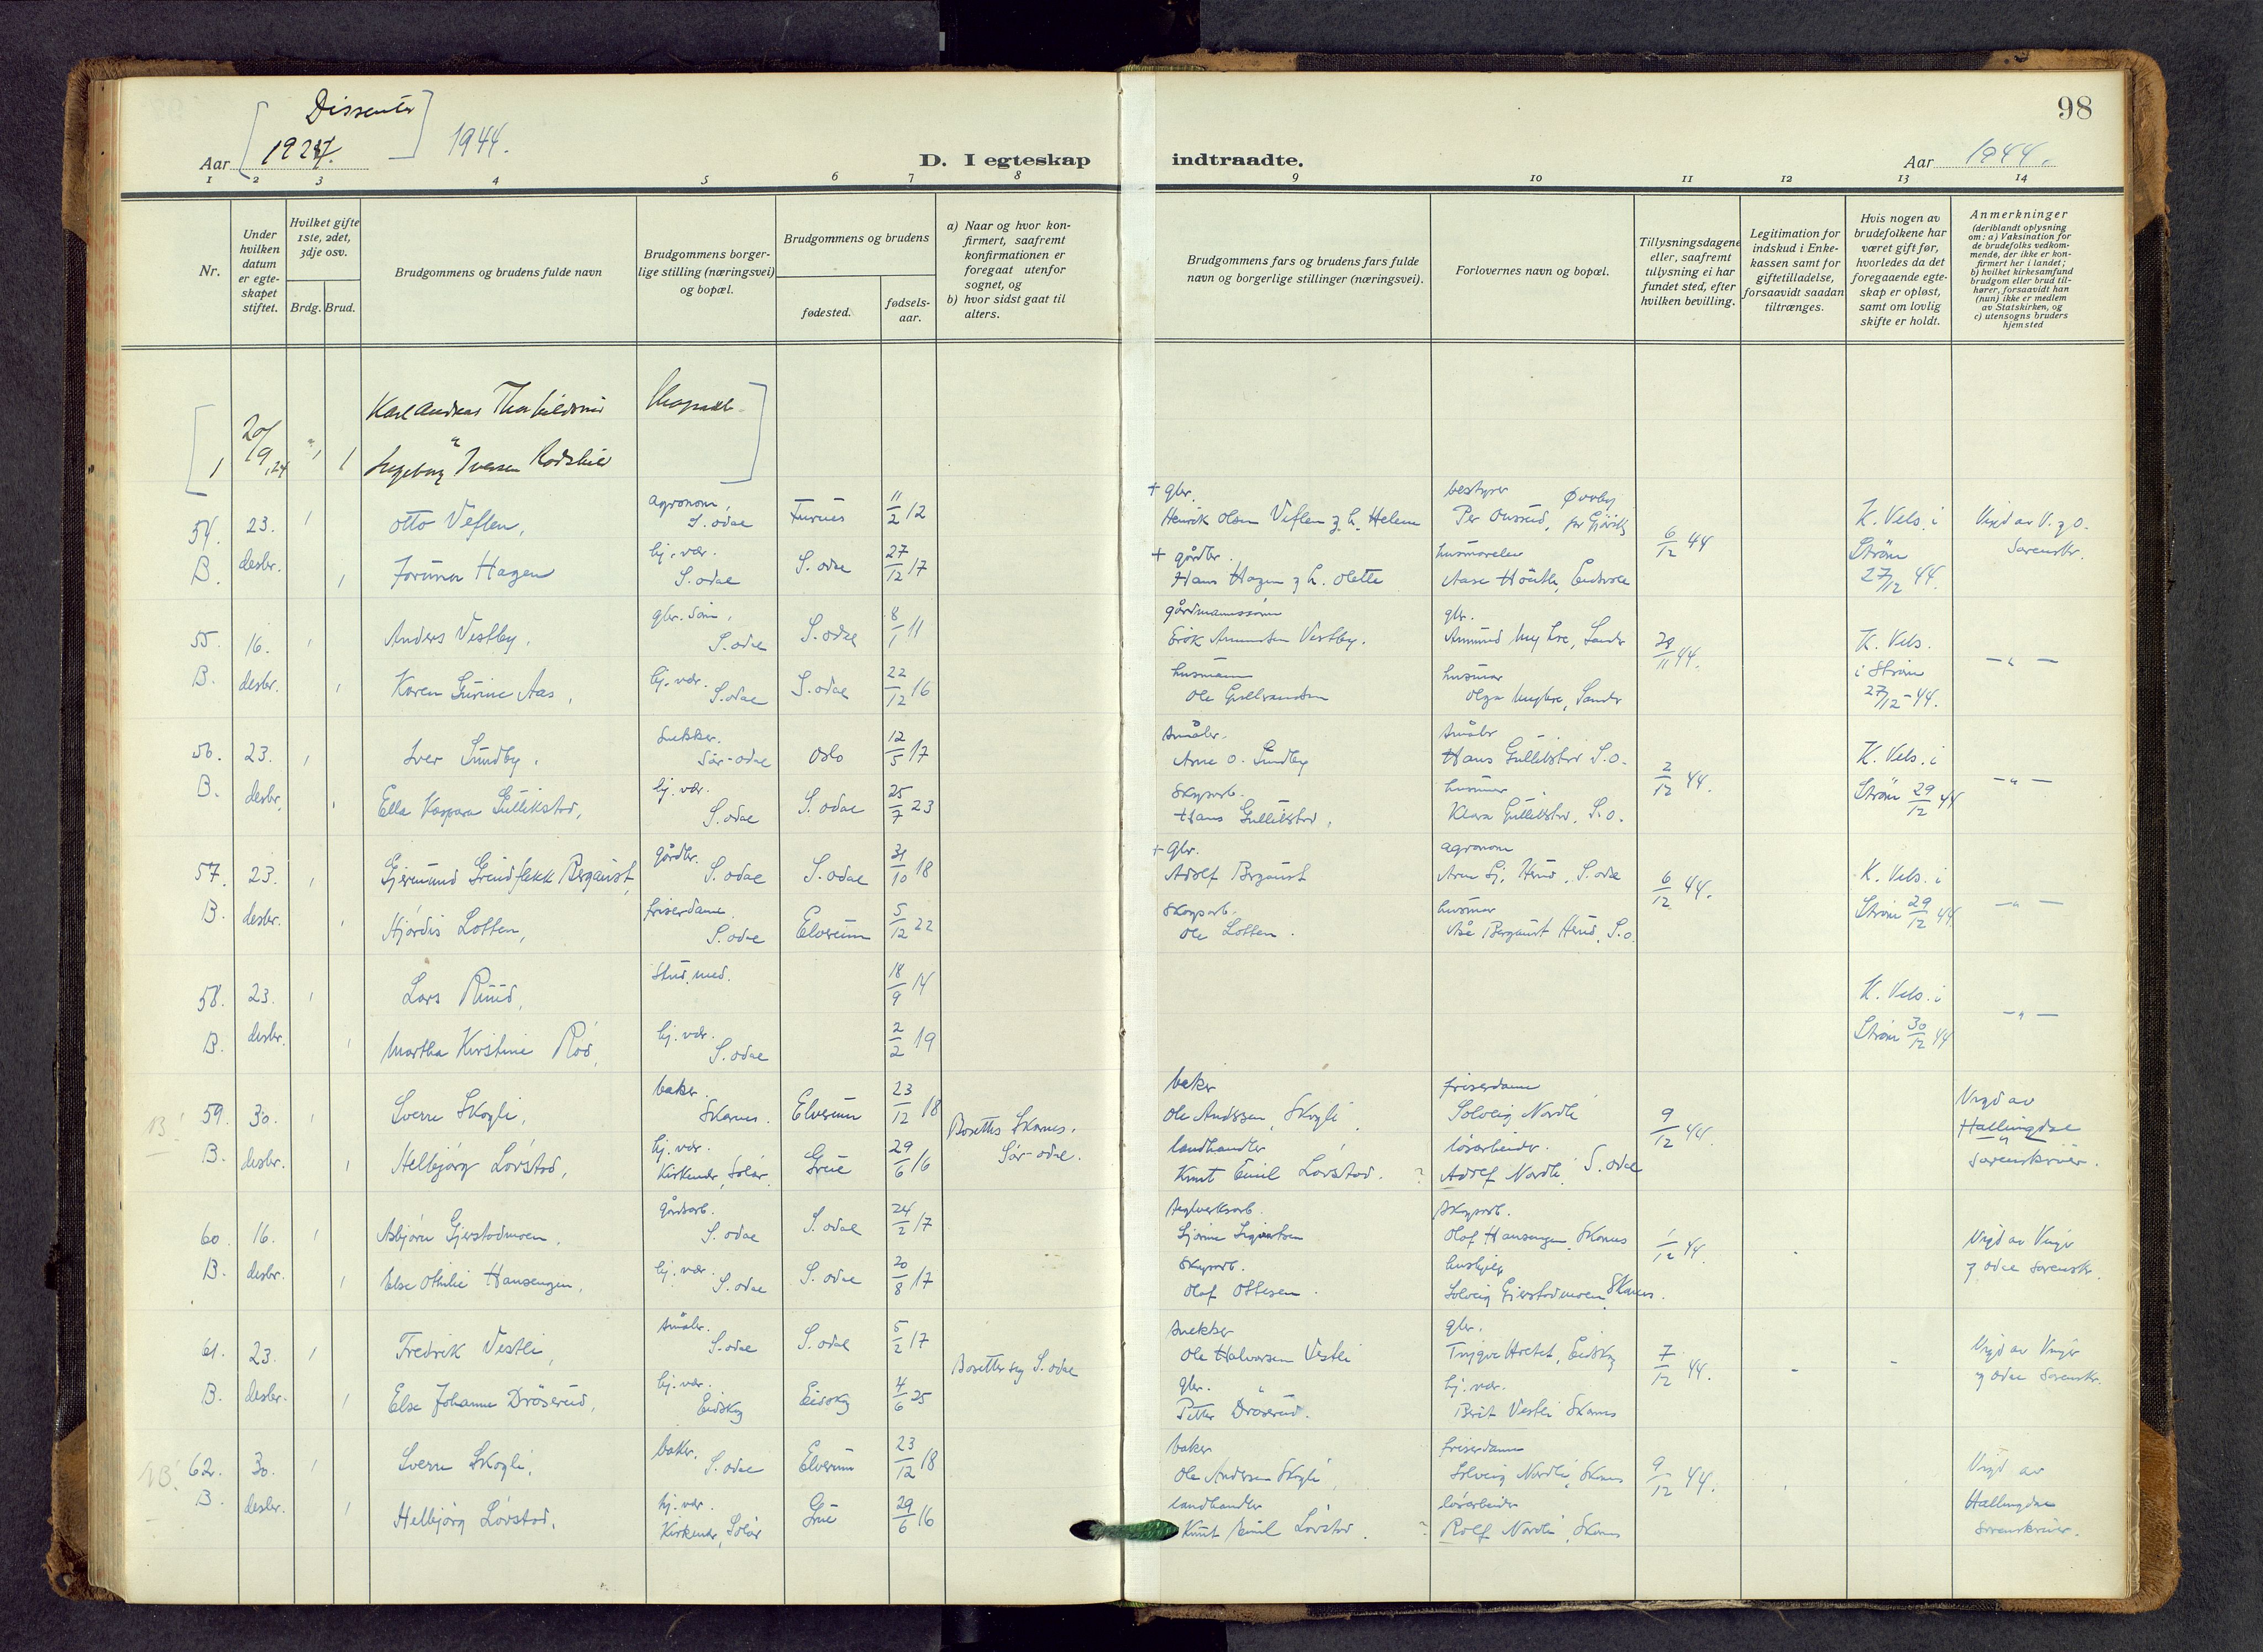 98
[ Dissenter ]
Aar 1924. 1944.
D. I egteskap
indtraadte.
Aar 1944.
1 2 3 4 5 6 7 8 9 10 11 12 13 14
Nr.
Under hvilken datum er egteskapet stiftet.
Hvilket gifte 1ste, 2det, 3dje osv.
Brdg. Brud.
Brudgommens og brudens fulde navn
Brudgommens borgerlige stilling (næringsvei) og bopæl.
Brudgommens og brudens
fødested.
fødselsaar.
a) Naar og hvor konfirmert, saafremt konfirmationen er foregaat utenfor sognet, og
b) hvor sidst gaat til alters.
Brudgommens fars og brudens fars fulde navn og borgerlige stillinger (næringsvei).
Forlovernes navn og bopæl.
Tillysningsdagene eller, saafremt tillysning ei har fundet sted, efter hvilken bevilling.
Legitimation for indskud i Enkekassen samt for giftetilladelse, forsaavidt saadan tiltrænges.
Hvis nogen av brudefolkene har været gift før, hvorledes da det foregaaende egteskap er opløst, samt om lovlig skifte er holdt.
Anmerkninger
(deriblandt oplysning om: a) Vaksination for de brudefolks vedkommende, der ikke er konfirmert her i landet;
b) hvilket kirkesamfund brudgom eller brud tilhører, forsaavidt han (hun) ikke er medlem av Statskirken, og
c) utensogns bruders hjemsted
1 20/9,24 1 1 Karl Andreas
Ingeborg Iversen
54. 23. 1 Otto Veflen, agronom, S. odal Furnes 11/2 12
+ gbr. Henrik Olsen Veflen og h. Helene bestyrer Per Onsrud, pr Gjøvik 6/12 44 K. Vels. i Strøm 27/12 44. Vigd av V. og O. Sorenskr.
B. desbr. 1 Jorunn Hagen hj. vær. S. odal S. odal 27/12 17
+ gårdbr. Hans Hagen og h. Olette Eidsvoll
55. 16. 1 Anders Vestby, gbr. søn, S. odal S. odal 8/1 11
gårdmannssønn Amundsen Vestby. gbr. Amund Myhre, Sander 28/11 44. K. Vels. i Strøm 27/12-44. — " —
B. desbr. 1 Karen Gurine Aas, hj. vær. S. odal S. odal 22/12 16
husmann Ole Gulbrandsen husmor Olga Myhre, Sander
56. 23. 1 Iver Sundby. snekker. Sør-odal Oslo 12/5 17
småbr. Arne O. Sundby småbr Hans Gullikstad S.o. 2/12 44. K. Vels. i Strøm 29/12 44 — " —
B. desbr. 1 Ella Kaspara Gullikstad, hj. vær. S. odal S. odal 25/7 23
skogsarb. Hans Gullikstad. husmor Klara Gullikstad. S.o.
57. 23. 1 Gjermund Bergquist, gårdbr. S. odal S. odal 31/10 18
+ gbr. Adolf Bergquist agronom Arne Gj. Herud. S. odal 6/12 44. K. Vels. i Strøm 29/12 44 — " —
B. desbr. 1 Hjørdis Lotten, friserdame. S. odal Elverum 5/12 22
skogsarb. Ole Lotten. husmor Bergquist Herud, S.o.
58. 23. 1 Lars Ruud, stud. med. 18/9 14
K. Vels. i Strøm 30/12 44 — " —
B. desbr. 1 Martha Kirstine Rød, hj. vær. S. odal 2/2 19
B! 59. 30. 1 Sverre Skogli, baker. Skarnes. Elverum 23/12 18 Bosettes Skarnes. Sør-odal.
baker Ole Andersen Skogli. friserdame Solveig Nordli 9/12 44. Vigd av Hallingdal sorenskriver.
B. desbr. 1 Helbjørg Løvstad, hj. vær. Kirkenær, Solør. Grue 29/6 16
landhandler Knut Emil Løvstad. ? løsarbeider. Adolf Nordli, S. odal
60. 16. 1 Asbjørn Gjerstadmoen, gårdsarb. S. odal S. odal 24/2 17
teglverksarb. skogsarb. Olaf Hansengen, Skarnes 1/12 44 Vigd av Vinger og odal sorenskr.
B. desbr. 1 Else Othilie Hansengen, hj. vær. S. odal S. odal 20/8 17
skogsarb. Olaf Ottesen. hushjelp Solveig Gjerstadmoen Skarnes.
61. 23. 1 Fredrik Vestli, småbr. S. odal S. odal 5/2 17 Bosetter seg S. odal
snekker Ole Halvorsen Vestli gbr. Trygve, Eidskog 7/12 44. - - Vigd av Vinger og odal Sorenskr.
B. desbr. 1 Else Johanne Drøserud, hj. vær. Eidskog Eidskog 4/6 25
gbr. Petter Drøserud. hj. vær. Berit Vestli Skarnes
B! 62. 30. 1 Sverre Skogli, baker. S. odal Elverum 23/12 18
baker Ole Andersen Skogli friserdame Solveig Nordli, Skarnes 9/12 44. Vigd av Hallingdal sorenskriver.
B. desbr. 1 Helbjørg Løvstad. hj. vær. Kirkenær, Solør Grue 29/6 16
landhandler Knut Emil Løvstad. ? løsarbeider Rolf Nordli, Skarnes